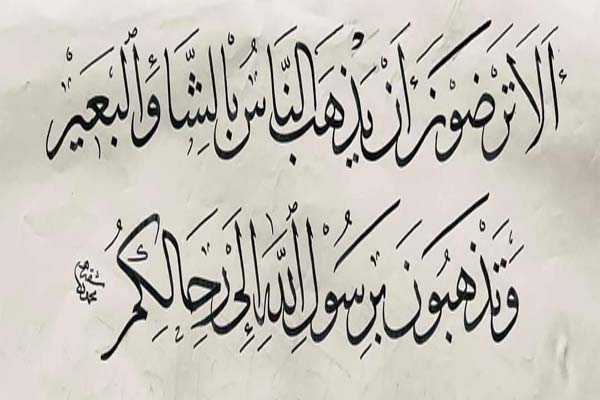 أَلَا تَرْضَوْنَ أَنْ يَذْهَبَ النَّاسُ بِالشَّاءِ وَالْبَعِيْرِ
وَتَذْهَبُونَ بِرَسُوْلِ اللهِ إِلَىٰ رِحَالِكُمْ